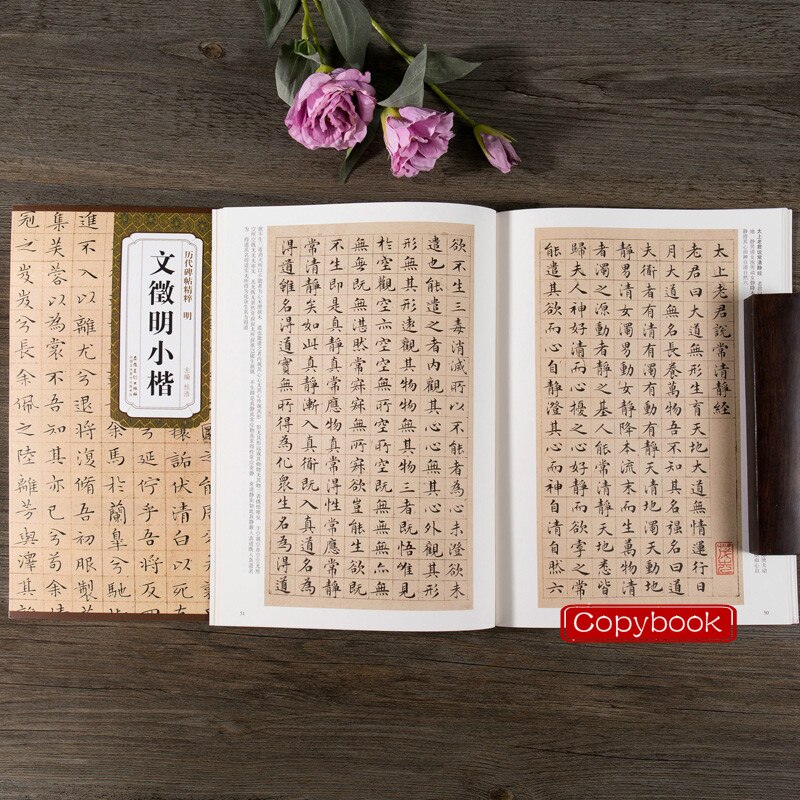 历代碑帖精粹 明
文徵明小楷
主编 杜浩
攘詬伏清白以死
延佇乎吾將反
余馬於蘭皋兮馳
進不入以離尤兮退將復脩吾初服製
集芙蓉以為裳不吾知其亦已兮苟余情
冠之岌岌兮長余佩之陸離芳與澤其
太上老君說常清靜經
老君曰大道無形生育天地大道無情運行日
月大道無名長養萬物吾不知其名强名曰道
夫道者有清有濁有動有靜天清地濁天動地
靜男清女濁男動女靜降本流末而生萬物清
者濁之源動者靜之基人能常清靜天地悉皆
歸夫人神好清而心擾之心好靜而欲牽之常
能遣其欲而心自靜澄其心而神自清自然六
50
欲不生三毒消滅所以不能者為心未澄欲未
遣也能遣之者內觀其心心無其心外觀其形
形無其形遠觀其物物無其物三者既悟唯見
於空觀空亦空空無所空所空既無無無亦無
無無既無湛然常寂寂無所寂欲豈能生欲既
不生即是真靜真常應物真常得性常應常靜
常清靜矣如此真靜漸入真道既入真道名為
得道雖名得道實無所得為化眾生名為得道
51
Copybook